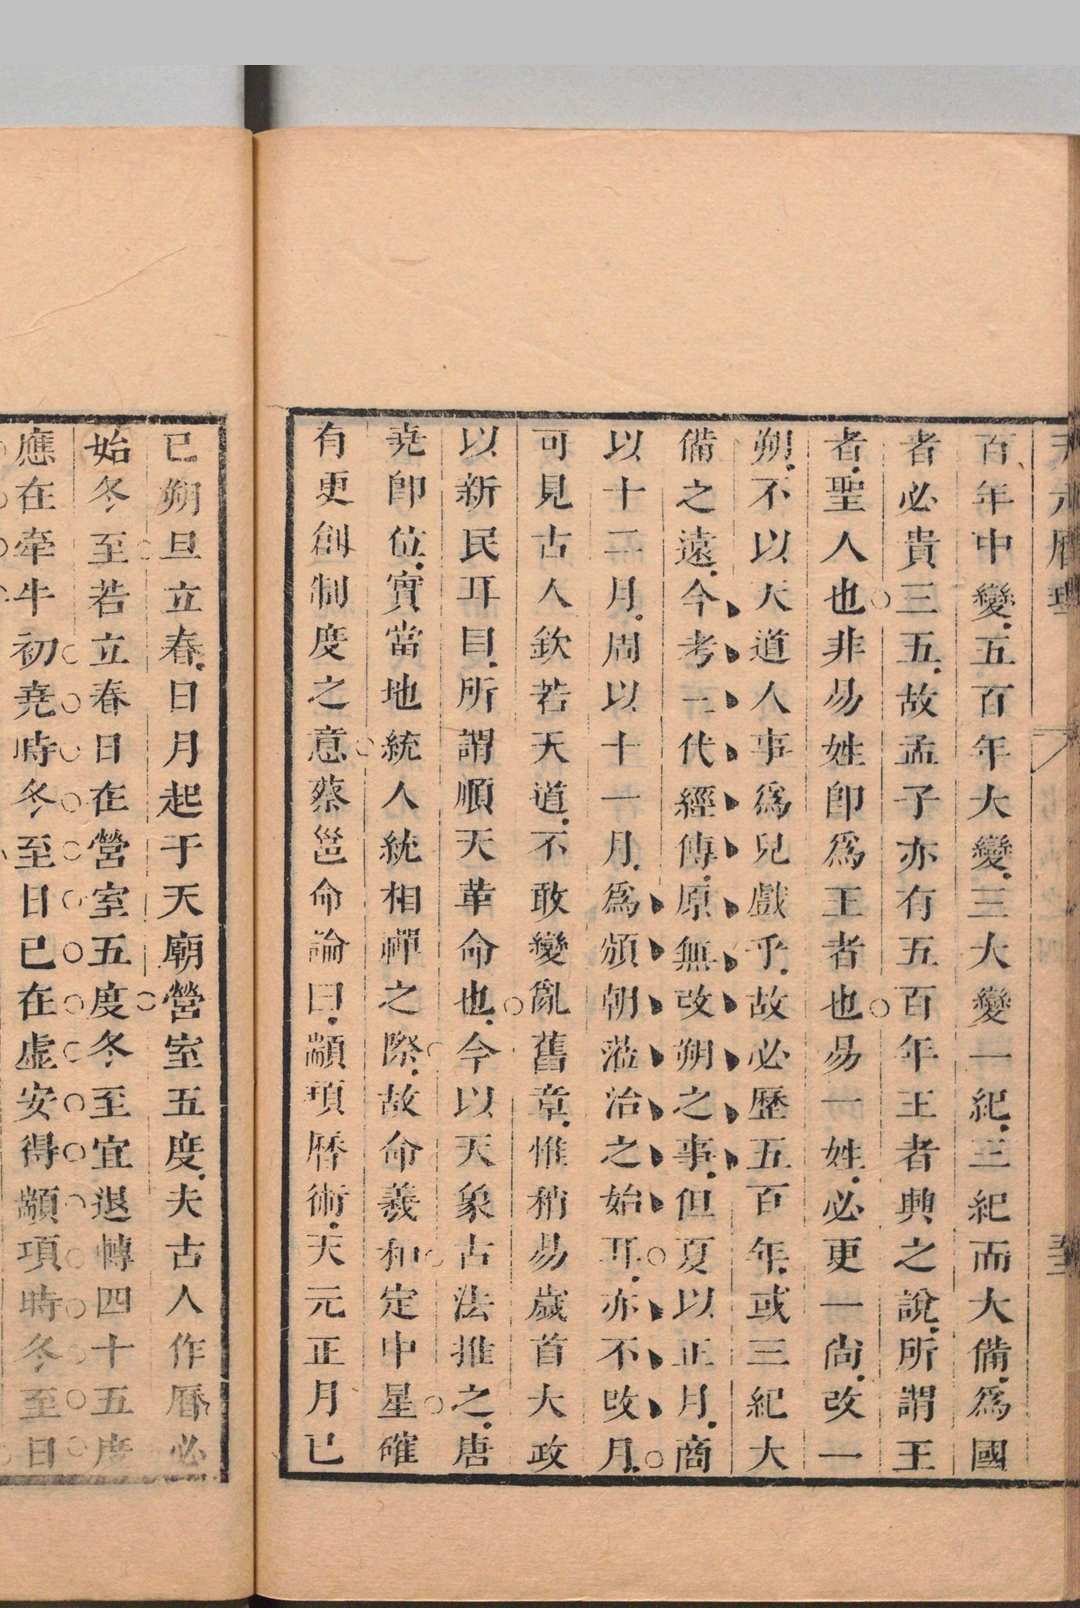 百年中變五百年大變三大變一紀三紀而大備爲國
者必貴三五故孟子亦有五百年王者興之說所謂王
者聖人也非易姓卽爲王者也易一姓必更一尚改一
朔不以天道人事爲兒戲乎故必歷五百年或三紀大
備之遠今考三代經傳原無改朔之事但夏以正月商
以十二月周以十一月爲頒朝蒞治之始耳亦不改月
可見古人欽若天道不敢變亂舊章惟稍易歲首大政
以新民耳目所謂順天革命也今以天象古法推之唐
堯卽位實當地統人統相禪之際故命羲和定中星確
有更創制度之意蔡邕命論曰顓頊曆術天元正月已
已朔旦立春日月起于天廟營室五度夫古人作曆必
始冬至若立春日在營室五度冬至宜退轉四十五度
應在牽牛初堯時冬至日已在虛安得顓頊時冬至日